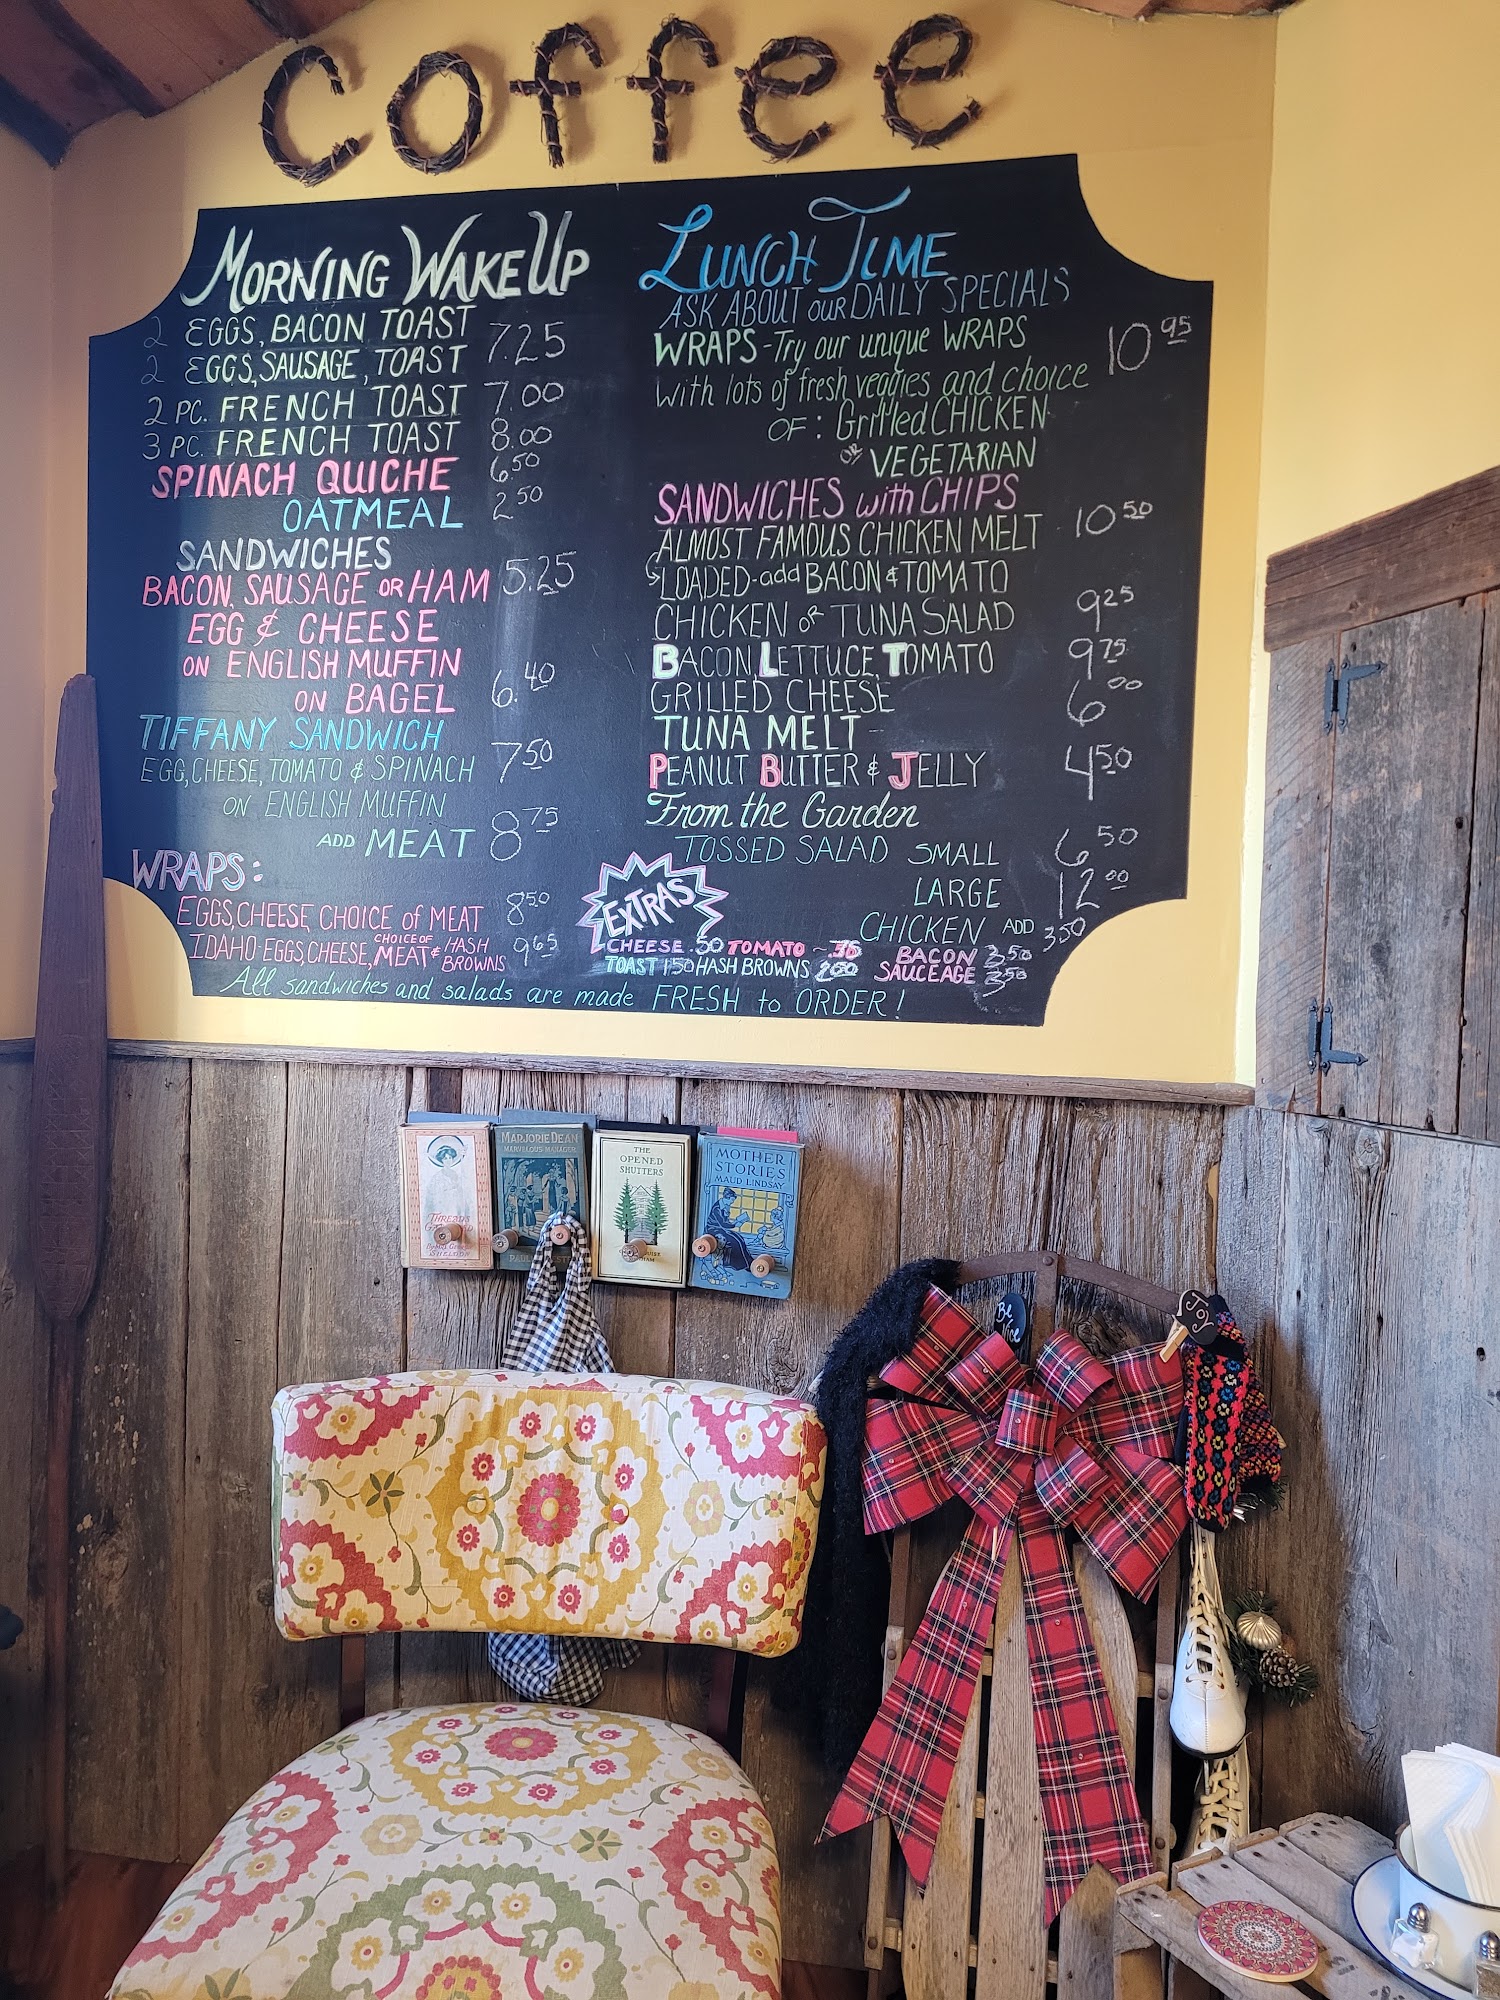 coffee
MORNING WAKE UP
2 EGGS, BACON TOAST
2 EGGS, SAUSAGE, TOAST 7.25
2 PC. FRENCH TOAST 7.00
3 PC. FRENCH TOAST 8.00
SPINACH QUICHE 6.50
OATMEAL 2.50
SANDWICHES
BACON, SAUSAGE OR HAM 5.25
EGG & CHEESE
ON ENGLISH MUFFIN
ON BAGEL 6.40
TIFFANY SANDWICH
EGG, CHEESE, TOMATO & SPINACH 7.50
ON ENGLISH MUFFIN
ADD MEAT 8.75
WRAPS:
EGGS, CHEESE, CHOICE of MEAT 8.50
IDAHO-EGGS, CHEESE, CHOICE OF MEAT & HASH BROWNS 9.65
LUNCH TIME
ASK ABOUT our DAILY SPECIALS
WRAPS - Try our unique WRAPS 10.95
with lots of fresh veggies and choice
OF: Grilled CHICKEN
OR VEGETARIAN
SANDWICHES with CHIPS
ALMOST FAMOUS CHICKEN MELT 10.50
LOADED - add BACON & TOMATO
CHICKEN or TUNA SALAD 9.25
BACON, LETTUCE, TOMATO 9.75
GRILLED CHEESE 6.00
TUNA MELT
PEANUT BUTTER & JELLY 4.50
From the Garden
TOSSED SALAD SMALL 6.50
LARGE 12.00
CHICKEN ADD 3.50
EXTRAS
CHEESE .50 TOMATO BACON 3.50
TOAST 1.50 HASH BROWNS SAUCEAGE 3.50
All sandwiches and salads are made FRESH to ORDER!
THREADS
SHELDON
MARJORIE DEAN
MARVELOUS MANAGER
THE
OPENED
SHUTTERS
MOTHER
STORIES
MAUD LINDSAY
Be
Nice
JOY